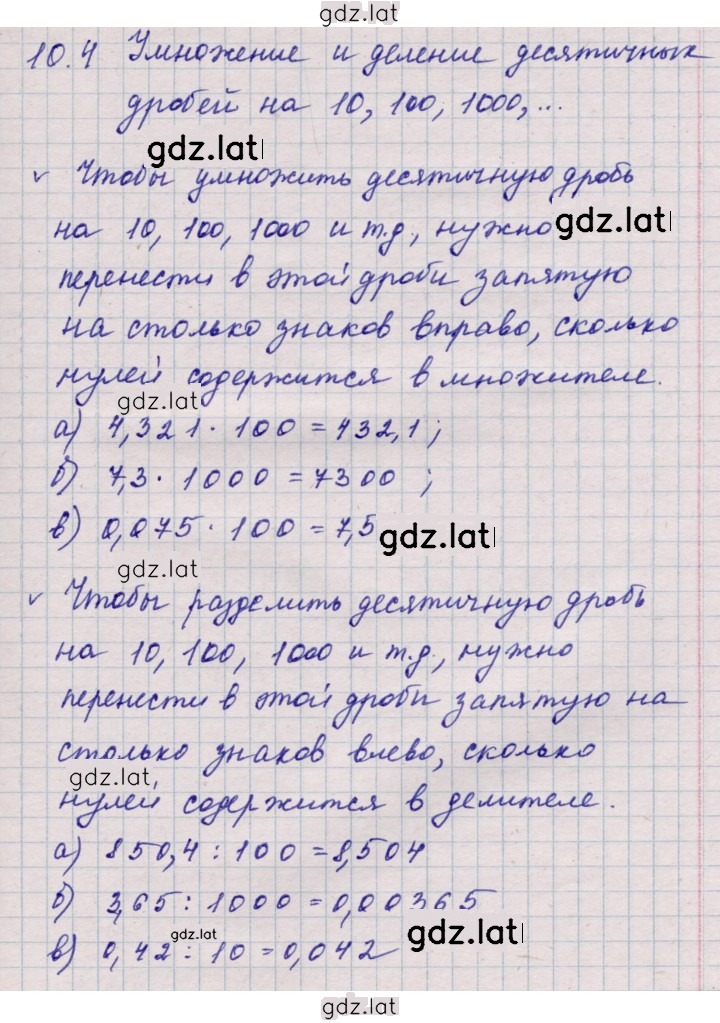 gdz.lat
10.4 Умножение и деление десятичных
дробей на 10, 100, 1000,...
gdz.lat
v Чтобы умножить десятичную дробь
на 10, 100, 1000 и т.д., нужно
gdz.lat
перенести в этой дроби запятую
на столько знаков вправо, сколько
нулей содержится в множителе.
gdz.lat
а) 4,321 · 100 = 432,1 ;
б) 7,3 · 1000 = 7300 ;
в) 0,075 · 100 = 7,5
gdz.lat
gdz.lat
v Чтобы разделить десятичную дробь
на 10, 100, 1000 и т.д., нужно
перенести в этой дроби запятую на
столько знаков влево, сколько
gdz.lat
нулей содержится в делителе.
а) 850,4 : 100 = 8,504
б) 3,65 : 1000 = 0,00365
gdz.lat
в) 0,42 : 10 = 0,042
gdz.lat
gdz.lat